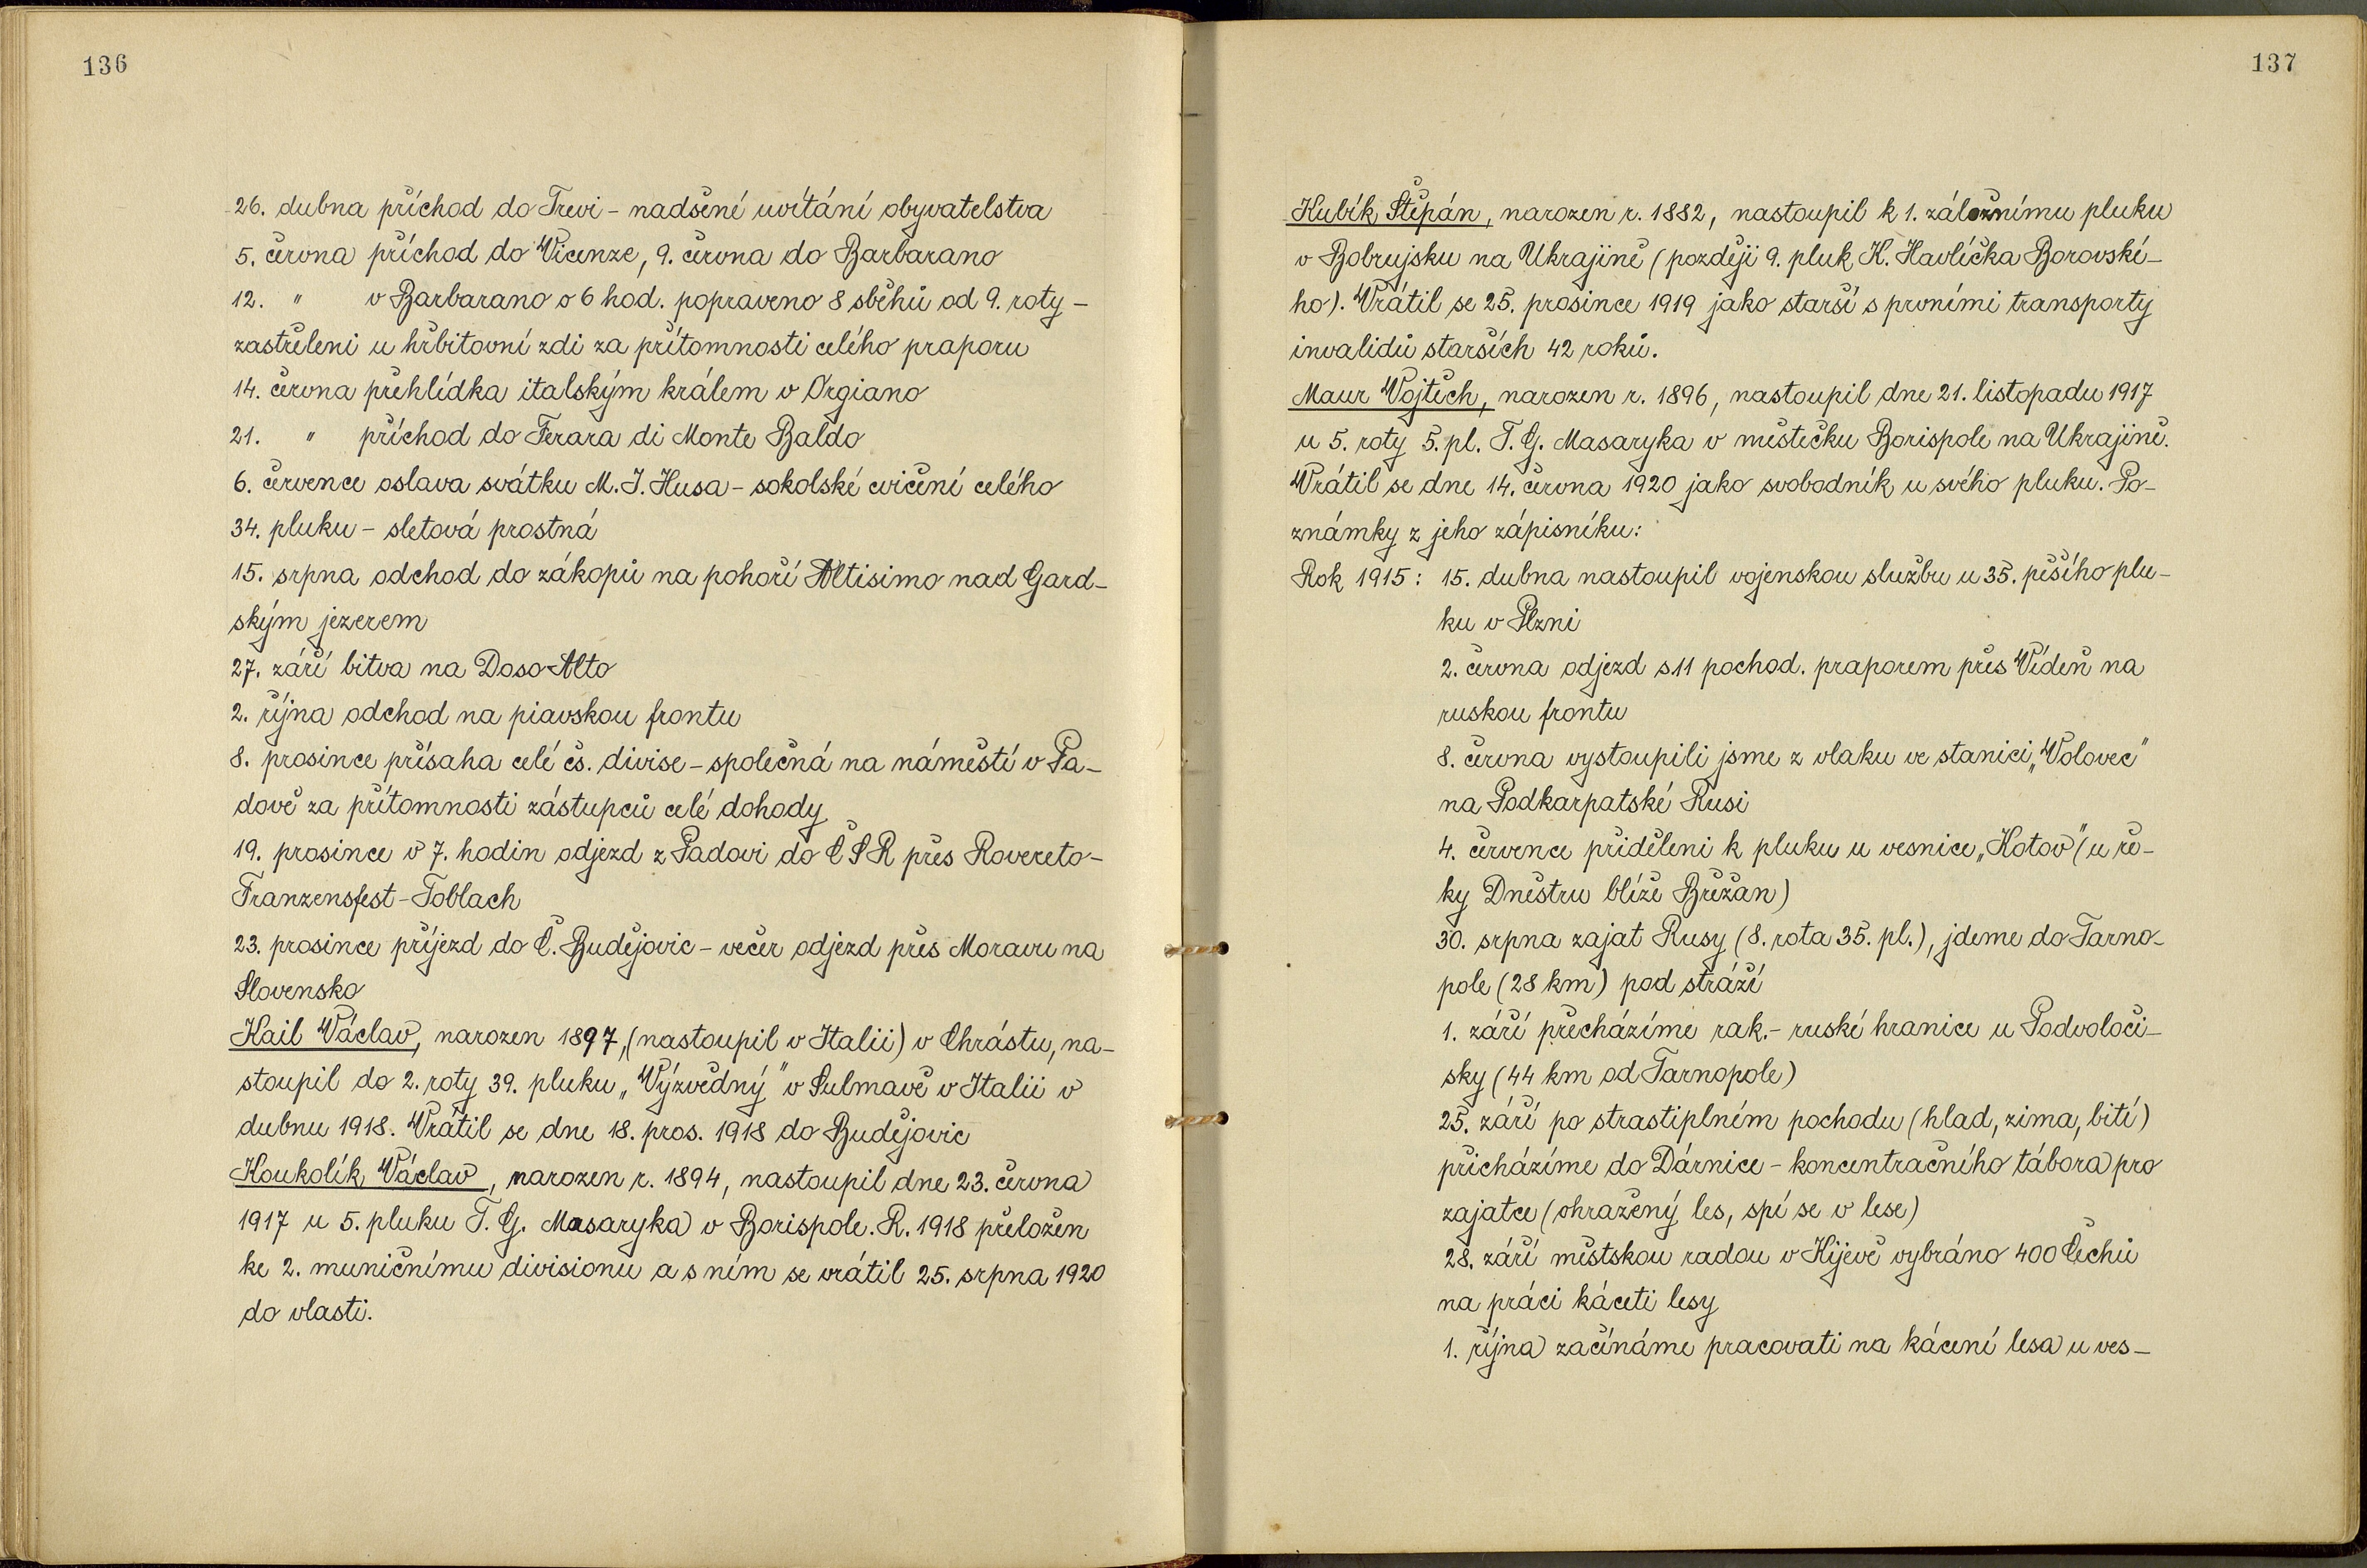 136
26. dubna příchod do Trevi – nadšené uvítání obyvatelstva
5. června příchod do Vicenze, 9. června do Barbarano
12. " v Barbarano o 6 hod. popraveno 8 sběhů od 9. roty –
zastřeleni u hřbitovní zdi za přítomnosti celého praporu
14. června přehlídka italským králem v Orgiano
21. " příchod do Ferara di Monte Baldo
6. července oslava svátku M. J. Husa – sokolské cvičení celého
34. pluku – sletová prostná
15. srpna odchod do zákopů na pohoří Altisimo nad Gard-
ským jezerem
27. září bitva na Doso Alto
2. října odchod na piavskou frontu
8. prosince přísaha celé čs. divise – společná na náměstí v Pa-
dově za přítomnosti zástupců celé dohody
19. prosince v 7. hodin odjezd z Padovi do ČSR přes Rovereto –
Franzensfest – Toblach
23. prosince příjezd do Č. Budějovic – večer odjezd přes Moravu na
Slovensko
Kail Václav, narozen 1897, (nastoupil v Italii) v Chrástu, na-
stoupil do 2. roty 39. pluku „Výzvědný" v Sulmavě v Italii v
dubnu 1918. Vrátil se dne 18. pros. 1918 do Budějovic
Koukolík Václav, narozen r. 1894, nastoupil dne 23. června
1917 u 5. pluku T. G. Masaryka v Borispole. R. 1918 přeložen
ke 2. muničnímu divisionu a s ním se vrátil 25. srpna 1920
do vlasti.
137
Kubík Štěpán, narozen r. 1882, nastoupil k 1. záložnímu pluku
v Bobrujsku na Ukrajině (později 9. pluk K. Havlíčka Borovské-
ho). Vrátil se 25. prosince 1919 jako starší s prvními transporty
invalidů starších 42 roků.
Maur Vojtěch, narozen r. 1896, nastoupil dne 21. listopadu 1917
u 5. roty 5. pl. T. G. Masaryka v městečku Borispole na Ukrajině.
Vrátil se dne 14. června 1920 jako svobodník u svého pluku. Po-
známky z jeho zápisníku:
Rok 1915: 15. dubna nastoupil vojenskou službu u 35. pěšího plu-
ku v Plzni
2. června odjezd s 11 pochod. praporem přes Vídeň na
ruskou frontu
8. června vystoupili jsme z vlaku ve stanici „Volovec"
na Podkarpatské Rusi
4. července přiděleni k pluku u vesnice „Kotov" (u ře-
ky Dněstru blíže Břežan)
30. srpna zajat Rusy (8. rota 35. pl.), jdeme do Tarno-
pole (28 km) pod stráží
1. září přecházíme rak. – ruské hranice u Podvoloči-
sky (44 km od Tarnopole)
25. září po strastiplném pochodu (hlad, zima, bití)
přicházíme do Dárnice – koncentračního tábora pro
zajatce (ohražený les, spí se v lese)
28. září městskou radou v Kijevě vybráno 400 Čechů
na práci káceti lesy
1. října začínáme pracovati na kácení lesa u ves-